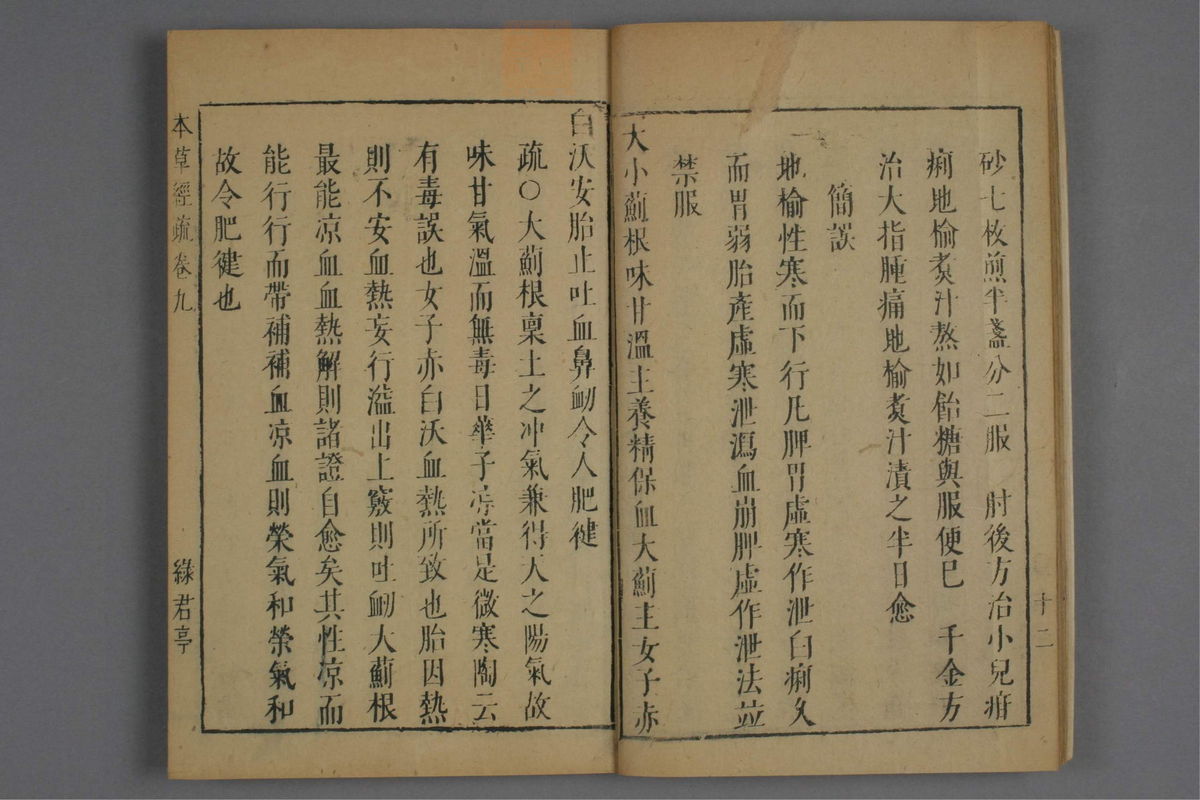 砂七枚煎半盞分二服　肘後方治小兒疳
痢地榆煑汁熬如飴糖與服便已　千金方
治大指腫痛地榆煑汁漬之半日愈
簡誤
地榆性寒而下行凡脾胃虛寒作泄白痢久
而胃弱胎產虛寒泄瀉血崩脾虛作泄法並
禁服
大小薊根味甘溫主養精保血大薊主女子赤
十二
白沃安胎止吐血鼻衄令人肥健
疏○大薊根稟土之冲氣兼得天之陽氣故
味甘氣溫而無毒日華子凉當是微寒陶云
有毒誤也女子赤白沃血熱所致也胎因熱
則不安血熱妄行溢出上竅則吐衄大薊根
最能凉血血熱解則諸證自愈矣其性凉而
能行行而帶補補血凉血則榮氣和榮氣和
故令肥健也
本草經疏卷九
綠君亭